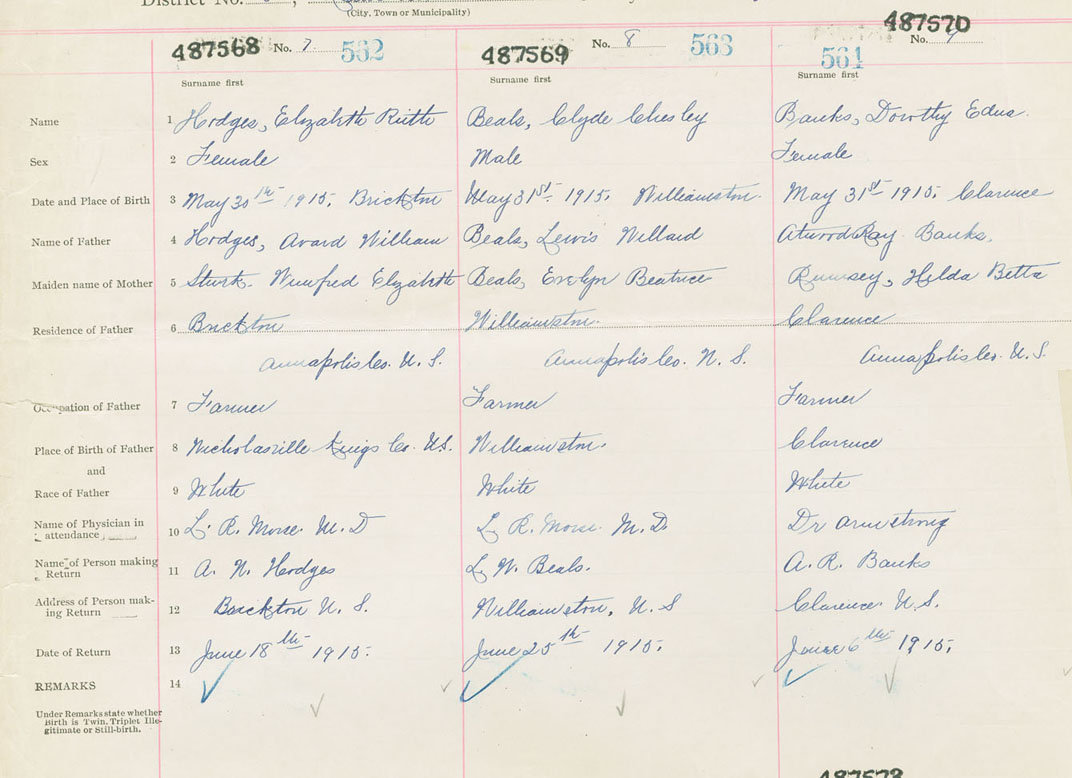 District No.
(City, Town or Municipality)
487568 No. 7 562
487569 No. 8 563
487570 No. 9 564
Surname first Surname first Surname first
Name 1 Hodges, Elizabeth Ruth Beals, Clyde Chesley Banks, Dorothy Edna.
Sex 2 Female Male Female
Date and Place of Birth 3 May 30th 1915, Brickton May 31st 1915. Williamston. May 31st 1915, Clarence
Name of Father 4 Hodges, Avard William Beals, Lewis Willard Atwood Ray Banks.
Maiden name of Mother 5 Winifred Elizabeth Beals, Evelyn Beatrice Rumsey, Hilda Betta
Residence of Father 6 Brickton Williamston. Clarence
Annapolis Co. N. S. Annapolis Co. N. S. Annapolis Co. N. S.
Occupation of Father 7 Farmer Farmer Farmer
Place of Birth of Father 8 Nicholasville Kings Co. N.S. Williamston. Clarence
and
Race of Father 9 White White White
Name of Physician in
attendance 10 L. R. Morse M.D L. R. Morse M.D. Dr Armstrong
Name of Person making
Return 11 A. W. Hodges L. W. Beals. A. R. Banks
Address of Person mak-
ing Return 12 Brickton N. S. Williamston, N. S Clarence N. S.
Date of Return 13 June 18th 1915. June 25th 1915. June 6th 1915,
REMARKS 14
Under Remarks state whether
Birth is Twin, Triplet Ille-
gitimate or Still-birth.
487573